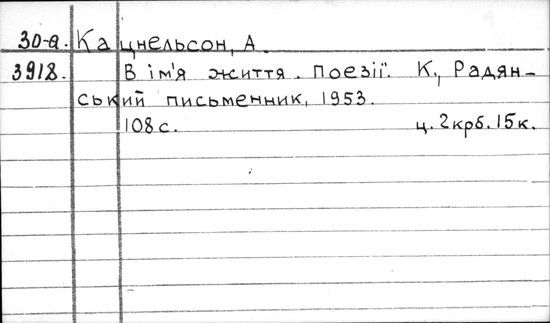 30-а. Кацнельсон, А.
3918. В ім'я життя. Поезії. К., Радян-
ський письменник, 1953.
108 с. ц. 2 крб. 15 к.